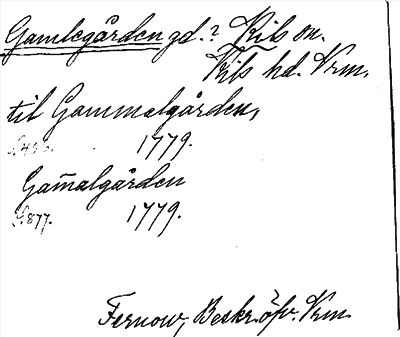 Gamlegården gd.? Kils sn.
Kils hd. Vrm.
til Gammalgården,
1779.
Gam̅algården
S. 877. 1779.
Fernow, Beskr. öfv. Vrm.